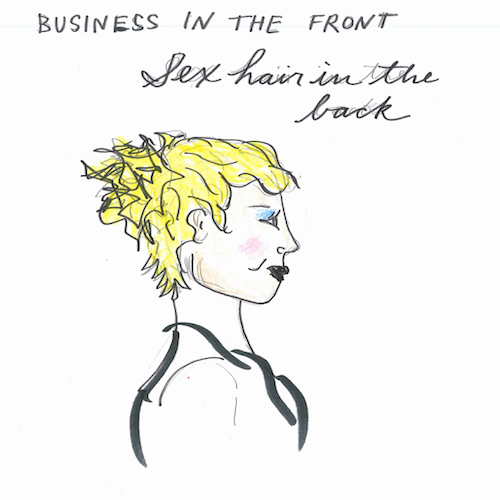 BUSINESS IN THE FRONT
Sex hair in the
back